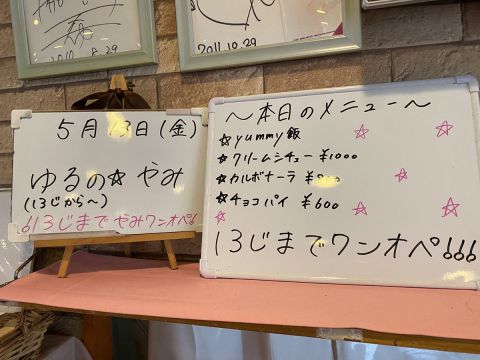 2010.8.29
2011.10.29
5月13日(金)
ゆるの☆ やみ
(13じから〜)
13じまでやみワンオペ
〜本日のメニュー〜
☆yummy飯
☆クリームシチュー ¥1000
☆カルボナーラ
☆チョコパイ ¥600
13じまでワンオペ